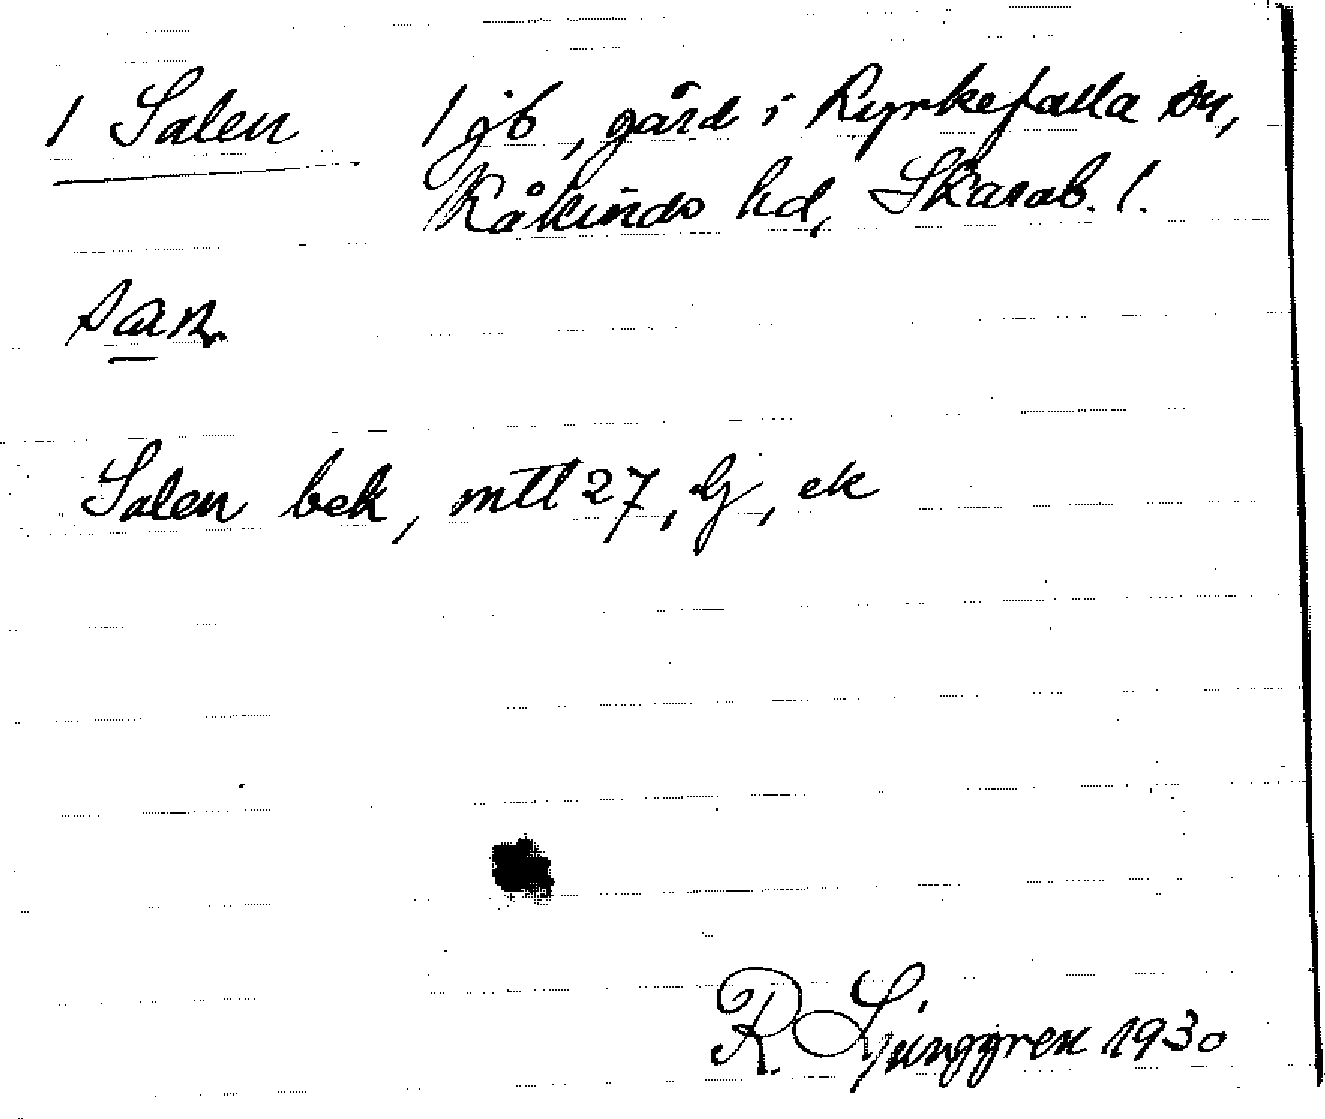 1 Salen 1 jb, gård i Kyrkefalla sn,
Kåkinds hd, Skarab. l.
Salen bek, mtl 27, lj, ek
R Ljunggren 1930